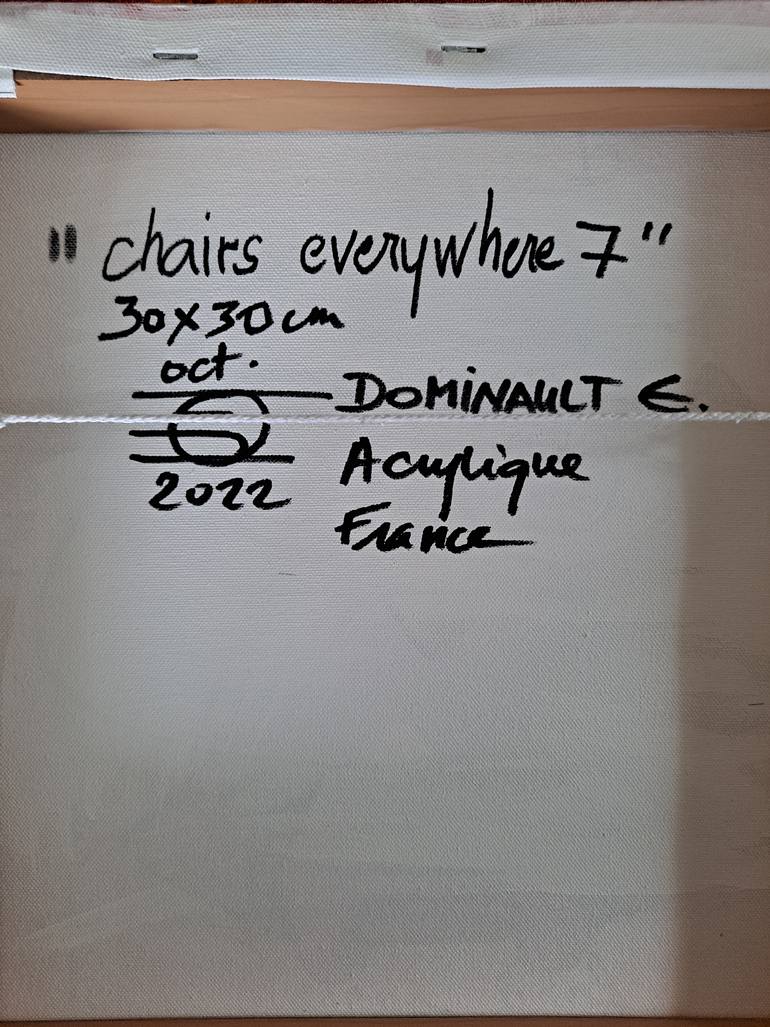 "chairs everywhere 7"
30x30cm
oct.
DOMINAULT E.
2022
Acrylique
France